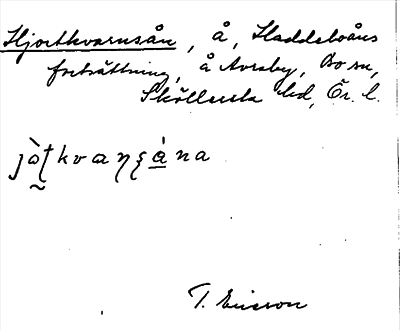 Hjortkvarnsån, å, Haddeboåns
fortsättning, å Avraby, Bo sn,
Sköllersta hd, Ör. l.
jò̰ʈkvaɳʂàna
T. Ericson